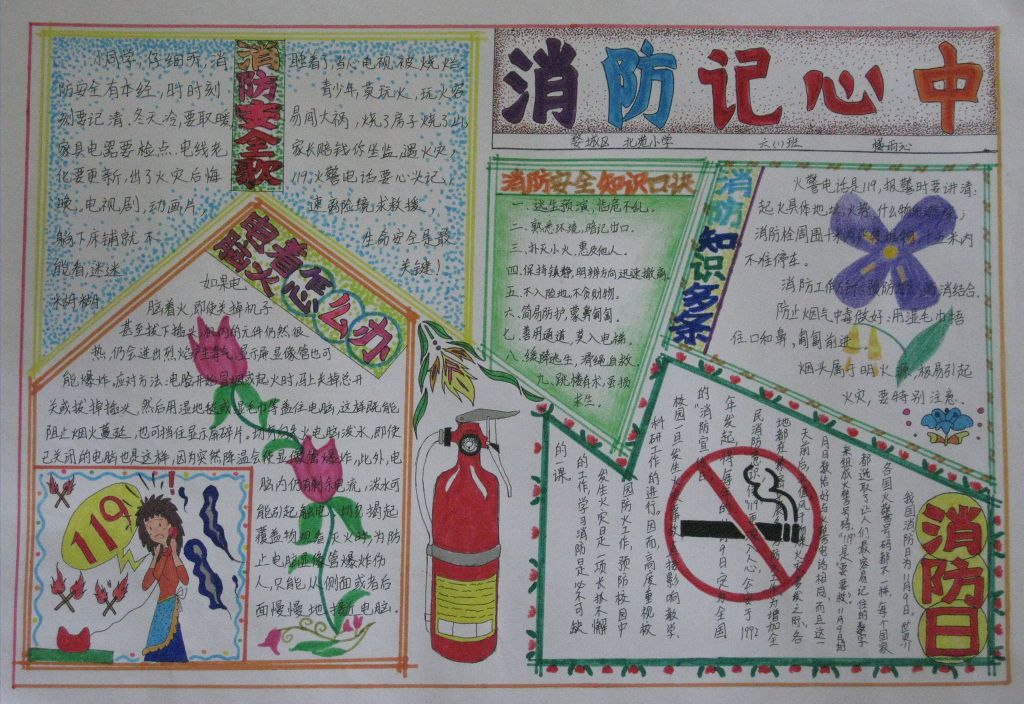 消防记心中
婺城区 北苑小学 六(1)班
消防安全歌
小同学,仔细听,消
防安全有本经,时时刻
刻要记清。冬天冷,要取暖
家具电器要检点。电线老
化要更新,出了火灾后悔
晚。电视剧,动画片,
躺下床铺就不
能看,迷迷
糊糊
睡着了,当心电视被烧烂
青少年,莫玩火,玩火容
易闯大祸,烧了房子烧了山,
家长赔钱你坐监。遇火灾,
119,火警电话要心头记,
速离险境求救援,
生命安全是最
关键!
电脑着火怎么办
如果电
脑着火,即使关掉机子
甚至拔下插头,机内的元件仍然很
热,仍会迸出烈焰产生毒气,显示屏显像管也可
能爆炸。应对方法:电脑开始冒烟或起火时,马上关掉总开
关或拔掉插头,然后用湿地毯或湿毛巾等盖住电脑,这样既能
阻止烟火蔓延,也可挡住显示屏碎片。切勿向失火电脑泼水,即使
已关闭的电脑也是这样,因为突然降温会使显像管爆炸。此外,电
脑内仍有剩余电流,泼水可
能引起触电。切勿揭起
覆盖物观看灭火时,为防
止电脑显像管爆炸伤
人,只能从侧面或者后
面慢慢地接近电脑。
119
消防安全知识口诀
一、逃生预演,临危不乱。
二、熟悉环境,暗记出口。
三、扑灭小火,惠及他人。
四、保持镇静,明辨方向,迅速撤离。
五、不入险地,不贪财物。
六、简易防护,蒙鼻匍匐。
七、善用通道,莫入电梯。
八、缓降逃生,滑绳自救。
九、跳楼有术,虽损
求生。
消防知识多条
火警电话是119,报警时要讲清
起火具体地址,火势,什么物
消防栓周围十米内
不准停车。
消防工作方针:预防为主,防消结合。
防止烟气中毒做好:用湿毛巾捂
住口和鼻,匍匐前进。
烟头属于明火源,极易引起
火灾,要特别注意。
消防日
我国消防日为11月9日。世界
各国火警号码都不一样,每个国家
都选取了让人们最容易记住的数字
来组成火警号码。"119"是"要要救"。11月9日的
月日数恰好与火警电话相同,而且这一
天前后,
地都在
民消防意识,使"119"深入人心,公安部于1992
年发起,将每年的11月9日定为全国
的"消防宣传日"。
校园一旦发生火灾事故,直接影响教学、
科研工作的进行。因而,高度重视校
园防火工作,预防校园中
发生火灾是一项长抓不懈
的工作,学习消防是必不可缺
的一课。